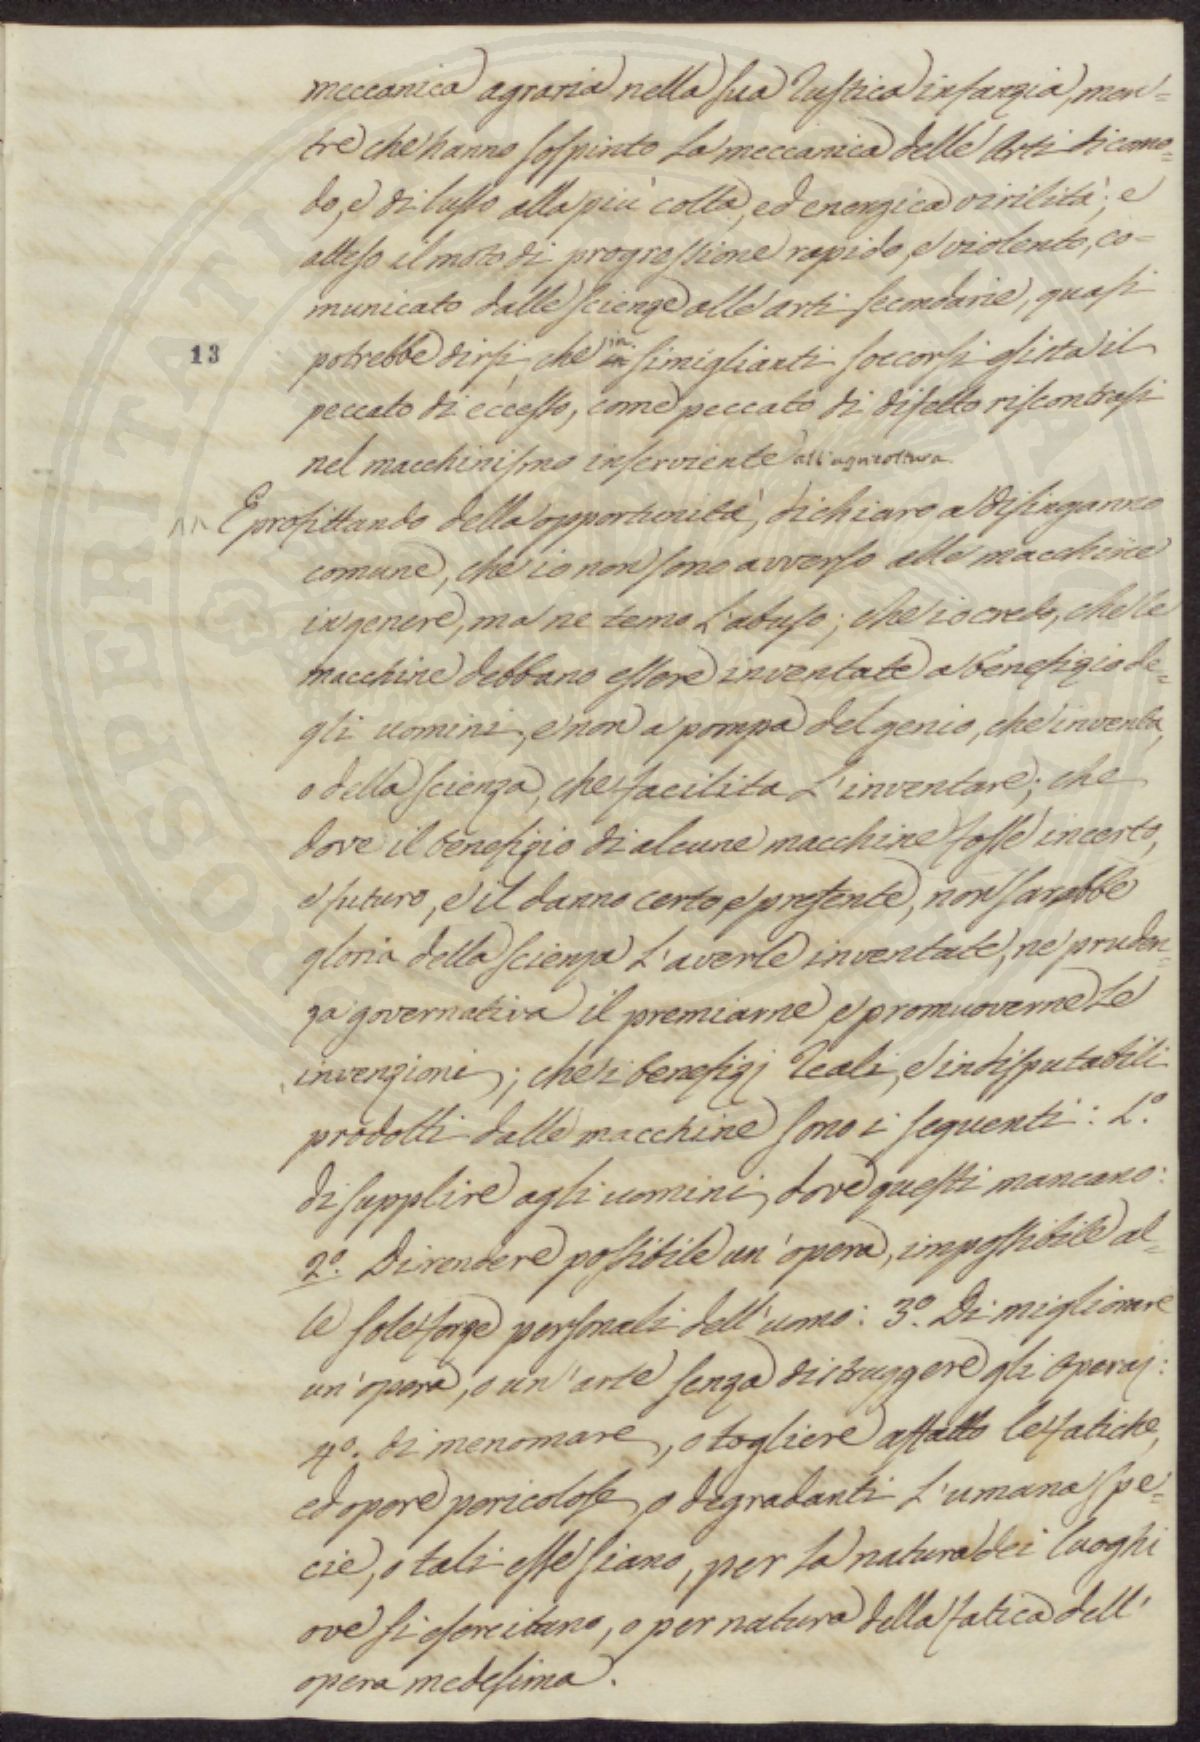 meccanica agraria nella sua rustica infanzia, men=
tre che hanno sospinto la meccanica delle Arti di como=
do, e di lusso alla più colta, ed energica virilità; e
atteso il moto di progressione rapido, e violento, co=
municato dalle scienze alle arti secondarie, quasi
13
potrebbe dirsi, che in simiglianti soccorsi esista il
peccato di eccesso, come peccato di difetto riscontrasi
nel macchinismo inserviente all'agricoltura
E profittando della opportunità, dichiaro a disinganno
comune, che io non sono avverso alle macchine
in genere, ma ne temo l'abuso; che io credo, che le
macchine debbano essere inventate a benefizio de=
gli uomini, e non a pompa del genio, che inventa,
o della scienza, che facilita l'inventare; che
dove il benefizio di alcune macchine fosse incerto,
e futuro, e il danno certo e presente, non sarebbe
gloria della scienza l'averle inventate, nè pruden=
za governativa il premiarne, e promuoverne le
invenzioni; che i benefizj reali, e indisputabili
prodotti dalle macchine sono i seguenti: 1.º
di supplire agli uomini, dove questi mancano:
2º. Di rendere possibile un'opera, impossibile al=
le sole forze personali dell'uomo: 3º. Di migliorare
un'opera, o un'arte senza distruggere gli operaj:
4º. di menomare, o togliere affatto le fatiche,
ed opere pericolose, o degradanti l'umana spe=
cie, o tali esse siano, per la natura dei luoghi
ove si esercitano, o per natura della fatica dell'
opera medesima.